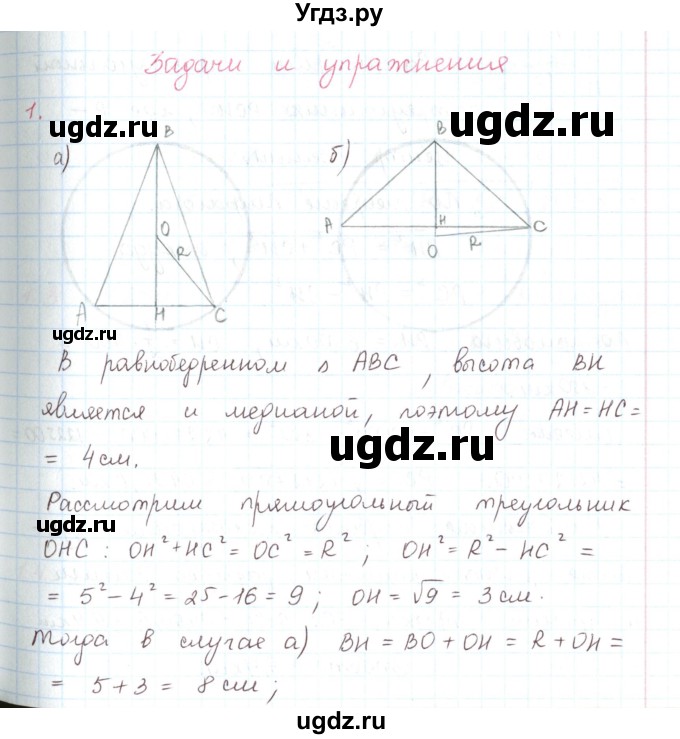 Угдз.ру
Задачи и упражнения
1.
ugdz.ru
ugdz.ru
а)
б)
B
B
O
R
A
H
C
A
H
C
O
R
ugdz.ru
В равнобедренном Δ ABC, высота BH
является и медианой, поэтому AH = HC =
= 4 см.
ugdz.ru
Рассмотрим прямоугольный треугольник
ugdz.ru
OHC : OH² + HC² = OC² = R² ; OH² = R² - HC² =
= 5² - 4² = 25 - 16 = 9 ; OH = √9 = 3 см.
Тогда в случае а) BH = BO + OH = R + OH =
= 5 + 3 = 8 см ;
ugdz.ru
ugdz.ru